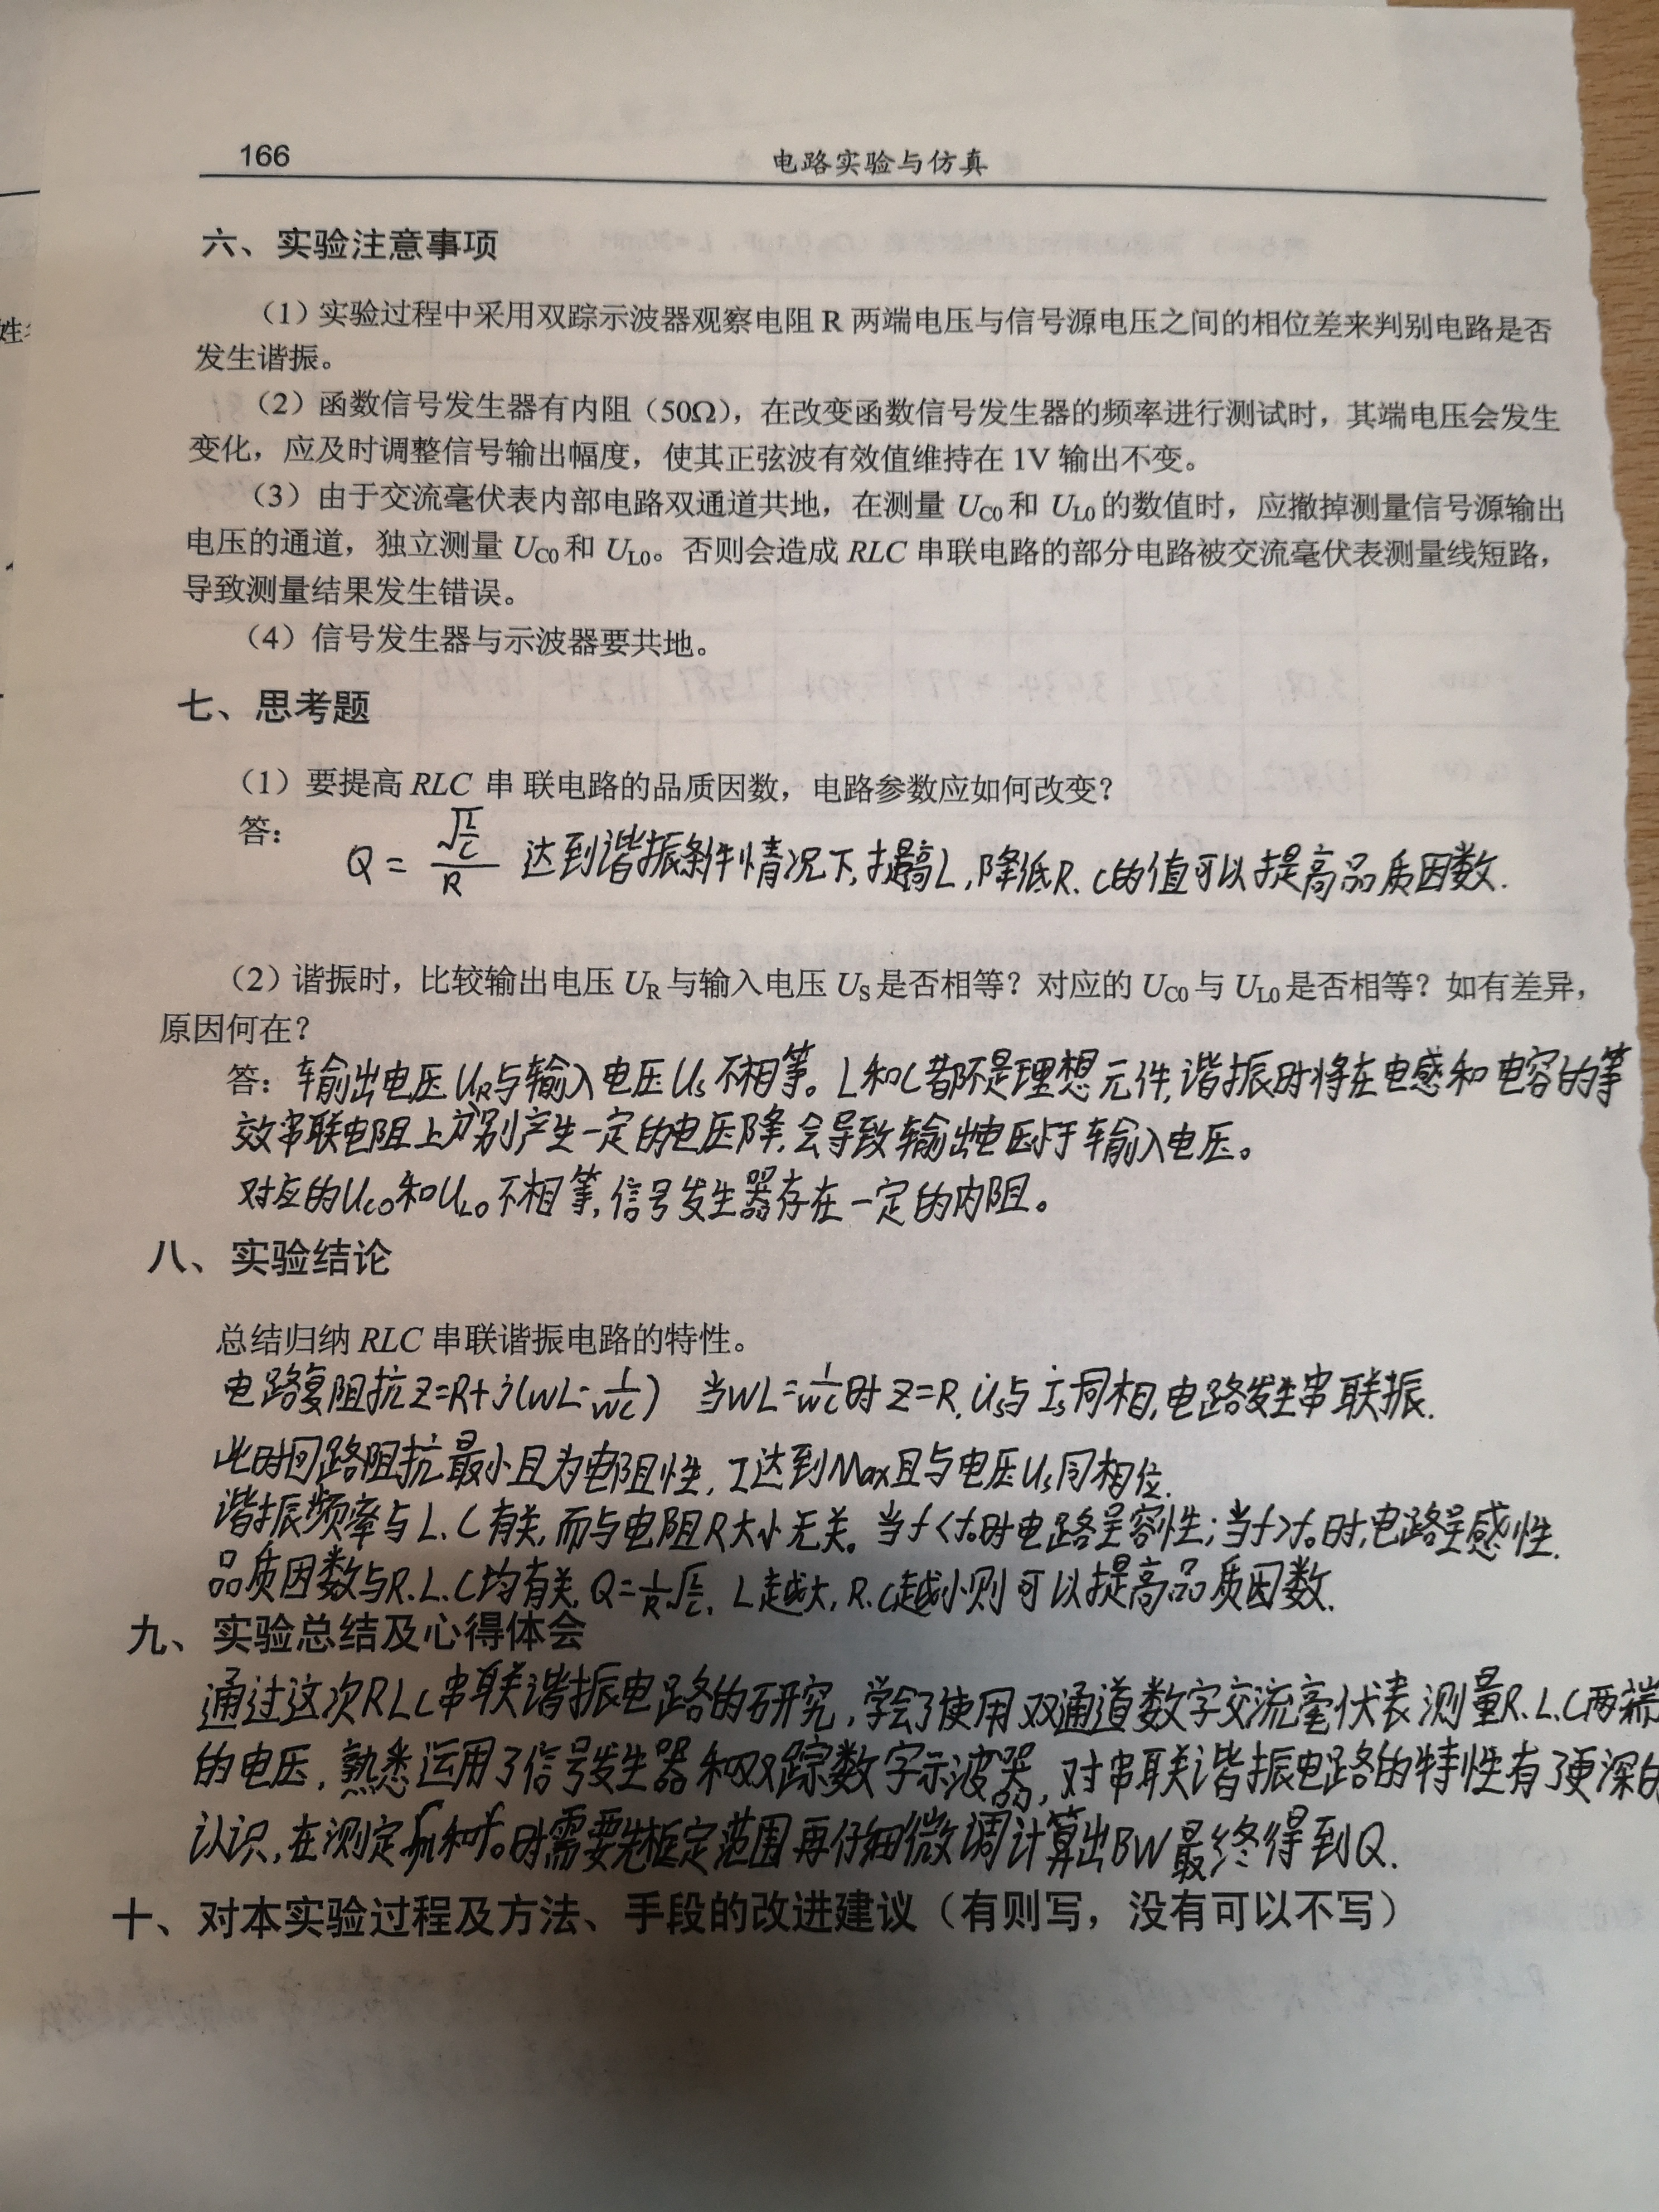 166
电路实验与仿真
六、实验注意事项
（1）实验过程中采用双踪示波器观察电阻 R 两端电压与信号源电压之间的相位差来判别电路是否
发生谐振。
（2）函数信号发生器有内阻（50Ω），在改变函数信号发生器的频率进行测试时，其端电压会发生
变化，应及时调整信号输出幅度，使其正弦波有效值维持在 1V 输出不变。
（3）由于交流毫伏表内部电路双通道共地，在测量 UC0 和 UL0 的数值时，应撤掉测量信号源输出
电压的通道，独立测量 UC0 和 UL0。否则会造成 RLC 串联电路的部分电路被交流毫伏表测量线短路，
导致测量结果发生错误。
（4）信号发生器与示波器要共地。
七、思考题
（1）要提高 RLC 串 联电路的品质因数，电路参数应如何改变？
答：
Q = √(L/C)/R 达到谐振条件情况下,提高L,降低R、C的值可以提高品质因数.
（2）谐振时，比较输出电压 UR 与输入电压 US 是否相等？对应的 UC0 与 UL0 是否相等？如有差异，
原因何在？
答：输出电压UR与输入电压Us不相等。L和C都不是理想元件,谐振时将在电感和电容的等
效串联电阻上分别产生一定的电压降,会导致输出电压小于输入电压。
对应的Uc0和UL0不相等,信号发生器存在一定的内阻。
八、实验结论
总结归纳 RLC 串联谐振电路的特性。
电路复阻抗Z=R+j(WL-1/WC) 当WL=1/WC时Z=R,U̇s与İs同相,电路发生串联振.
此时回路阻抗最小且为电阻性,I达到Max且与电压Us同相位.
谐振频率与L、C有关,而与电阻R大小无关。当f<f0时电路呈容性;当f>f0时,电路呈感性.
品质因数与R.L.C均有关,Q=1/R√(L/C), L越大,R.C越小则可以提高品质因数.
九、实验总结及心得体会
通过这次RLC串联谐振电路的研究,学会了使用双通道数字交流毫伏表测量R.L.C两端
的电压,熟悉运用了信号发生器和双踪数字示波器,对串联谐振电路的特性有了更深的
认识,在测定和f0时需要先框定范围再仔细微调计算出BW最终得到Q.
十、对本实验过程及方法、手段的改进建议（有则写，没有可以不写）